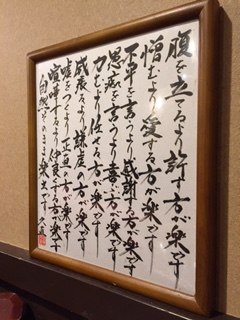 腹を立てるより許す方が楽です
憎むより愛する方が楽です
不平を言うより感謝する方が楽です
愚痴を言うより喜ぶ方が楽です
力むより任せる方が楽です
威張るより謙虚の方が楽です
嘘をつくより正直の方が楽です
喧嘩するより仲良くする方が楽です
自然のまま楽しく